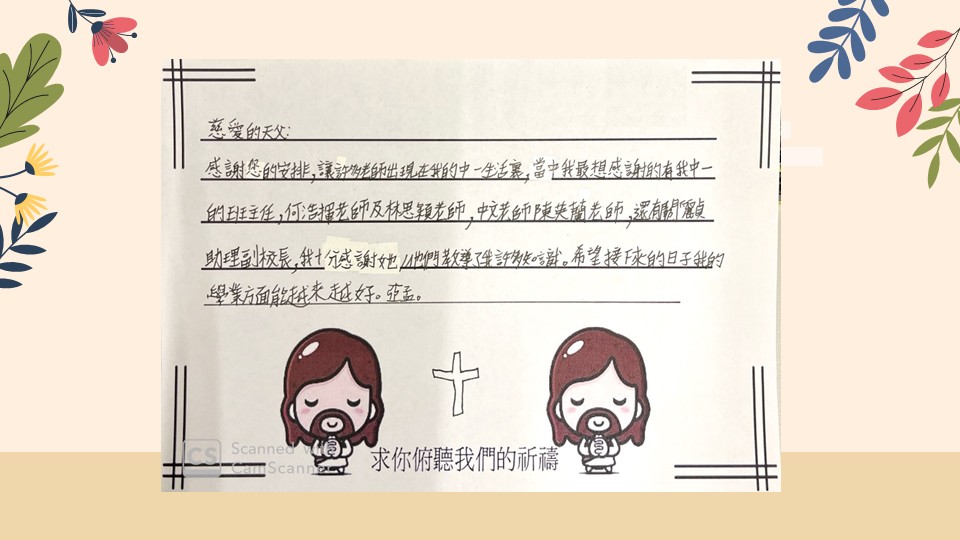 慈愛的天父:
感謝您的安排,讓許多老師出現在我的中一生活裏,當中我最想感謝的有我中一
的班主任,何浩擢老師及林思穎老師,中文老師陳英蘭老師,還有關麗貞
助理副校長,我十分感謝她/他們教導了我許多知識。希望接下來的日子我的
學業方面能越來越好。亞孟。
求你俯聽我們的祈禱
CS Scanned with
CamScanner